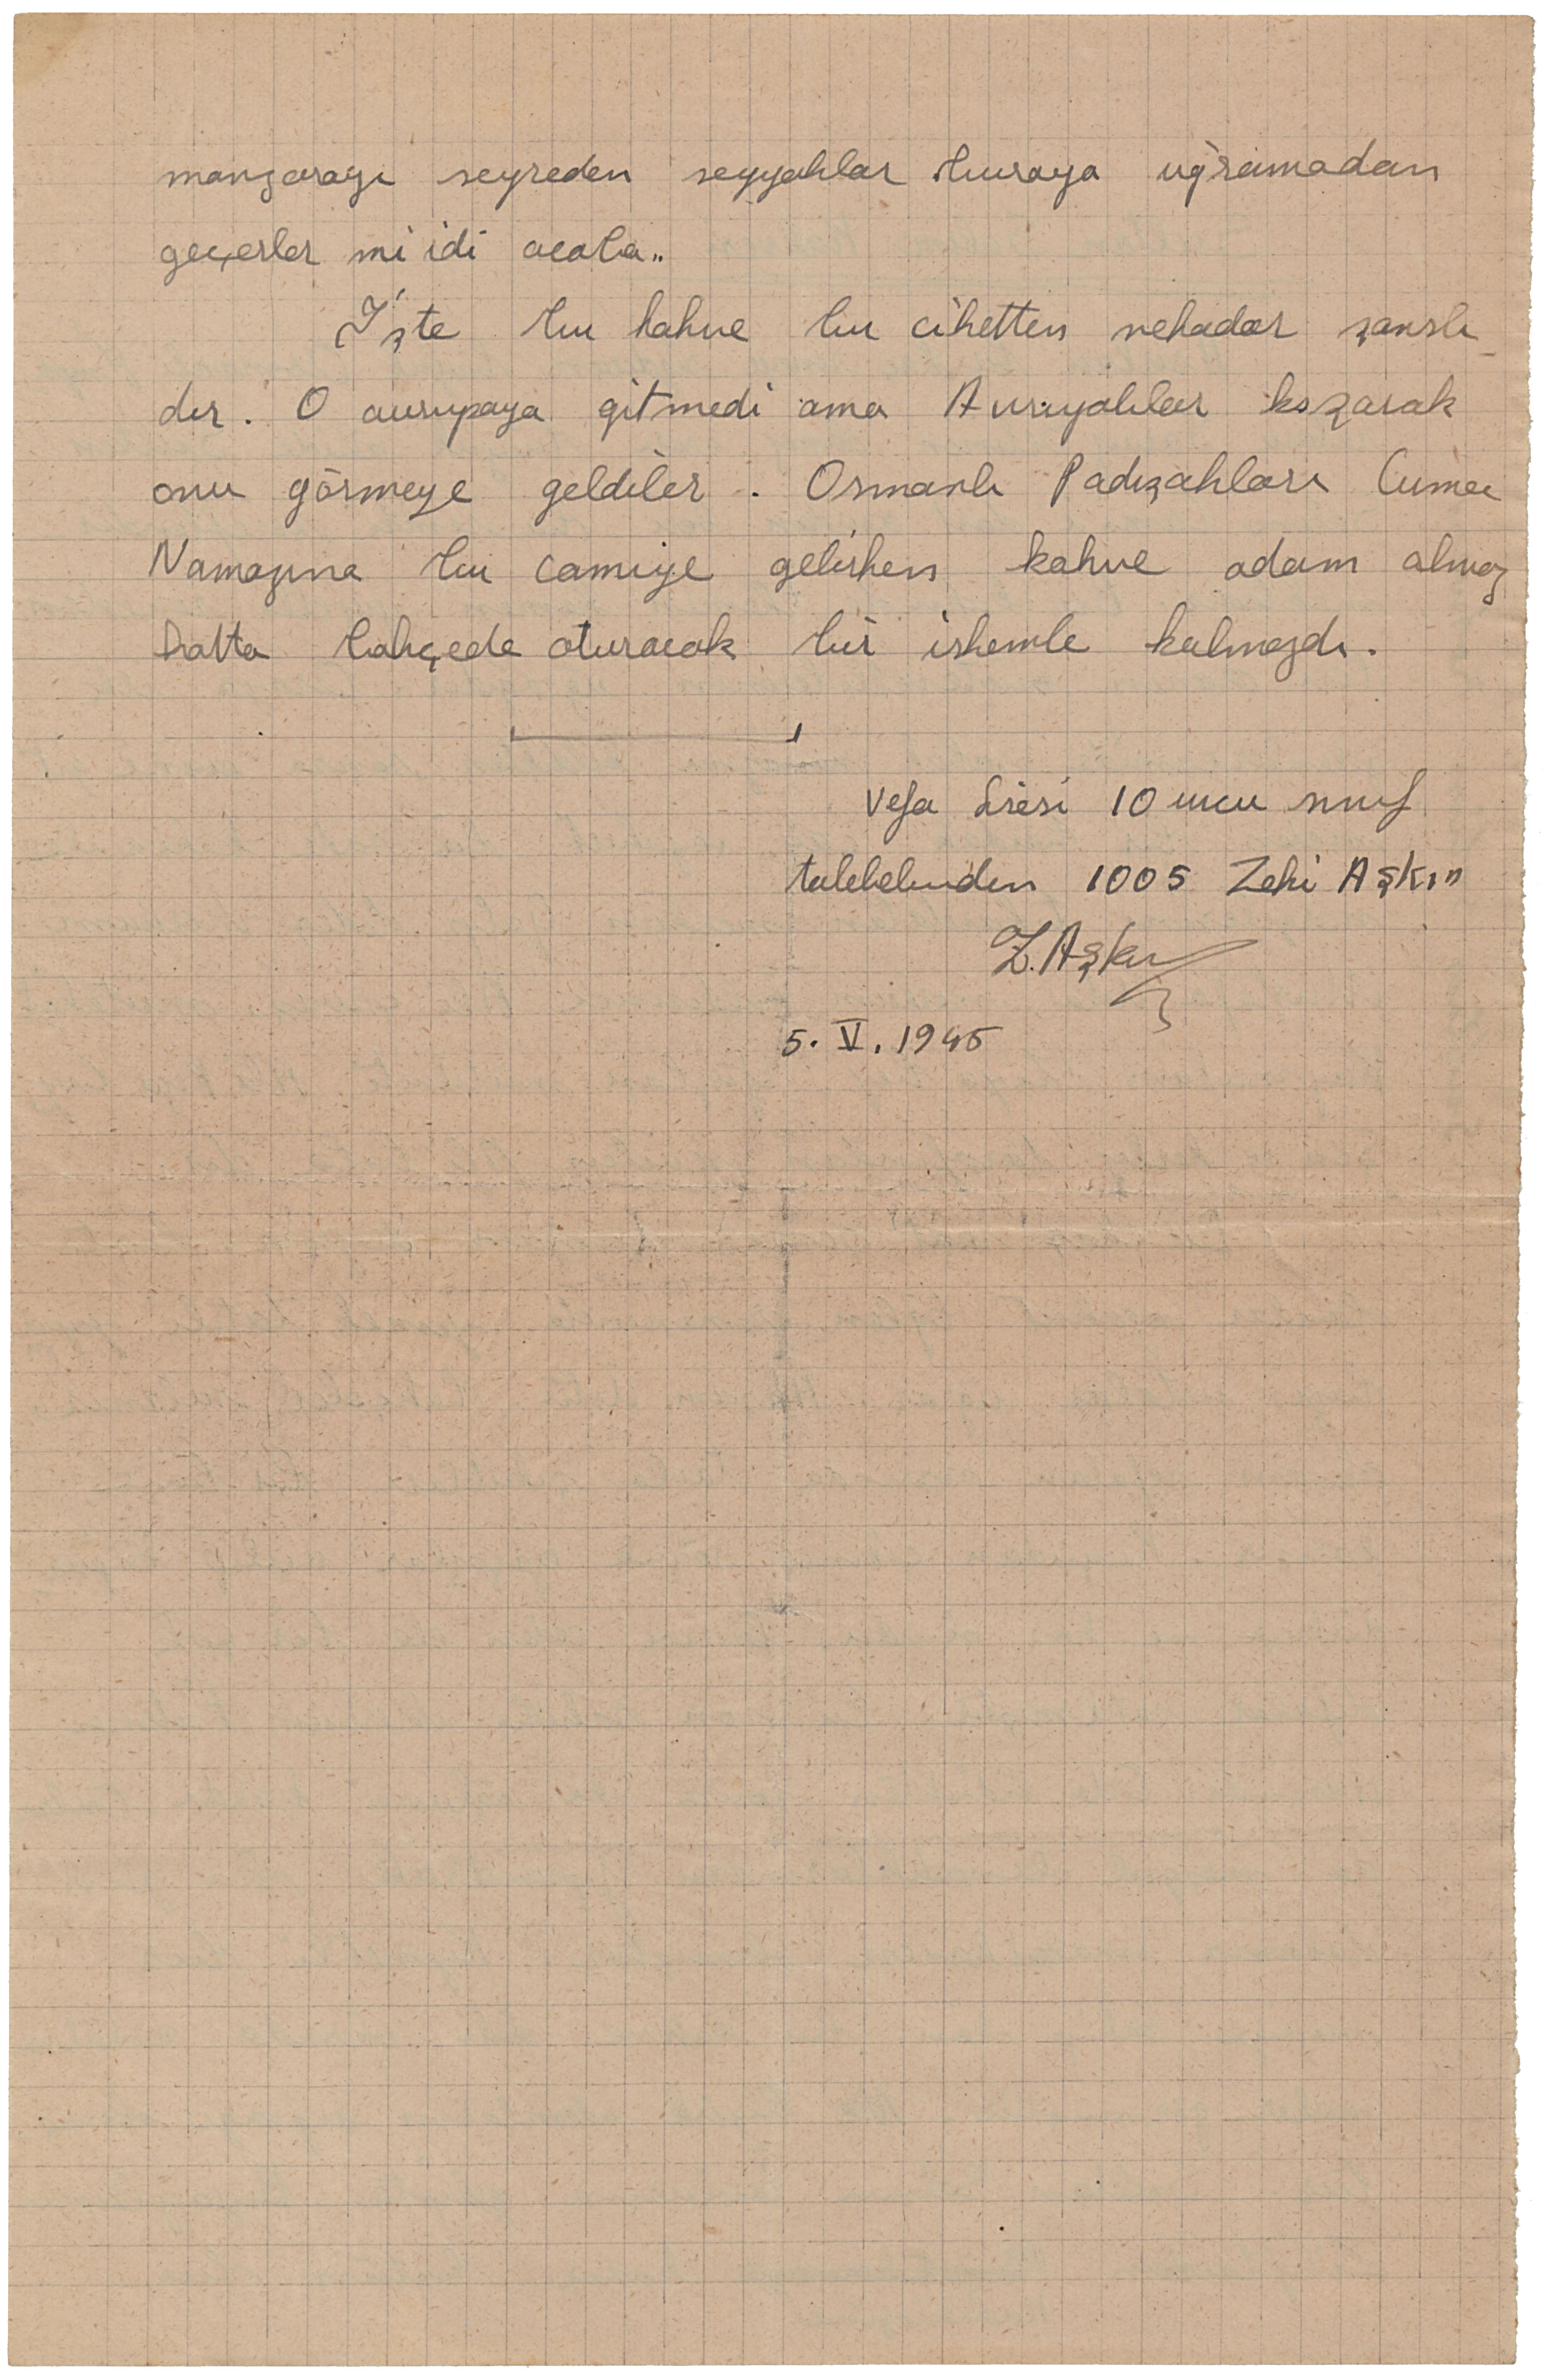 manzarayı seyreden seyyahlar buraya uğramadan
geçerler mi idi acaba..
İşte bu kahve bu cihetten nekadar şanslı
dır. O avrupaya gitmedi ama Avrupalılar koşarak
onu görmeye geldiler. Osmanlı Padişahları Cuma
Namazına bu camiye gelirken kahve adam almaz
hatta bahçede oturacak bir iskemle kalmazdı.
Vefa Lisesi 10 uncu sınıf
talebelerinden 1005 Zeki Aşkın
Z. Aşkın
5. V. 1945